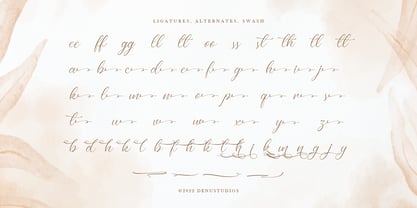 LIGATURES, ALTERNATES, SWASH
ee ff gg ll tt oo ss st th ll tt
a b c d e f g h i j
k l m n o p q r s
t u v w x y z
b d h k l b f h k t th f k m n g j y
©2022 DENUSTUDIOS